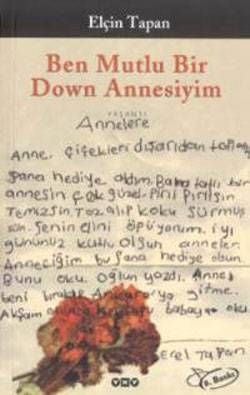 Elçin Tapan
Ben Mutlu Bir
Down Annesiyim
YAŞANTI
Annelere
Anne, çiçekleri dışarıdan
sana hediye aldım. Bana tatlı bir
annesin çok güzel Pırıl Pırılsın
Temizsin, Toz alıp koku sürmüş
sün. Senin elini öpüyorum. iyi
gününüz kutlu olsun anneler
Anneciğim bu sana hediye olsun.
Bunu oku. Oğlun yazdı. Anne
beni bırakıp Ankara'ya gitme.
Akşam babaya oku.
Erel Tapan
YKY
6. Baskı